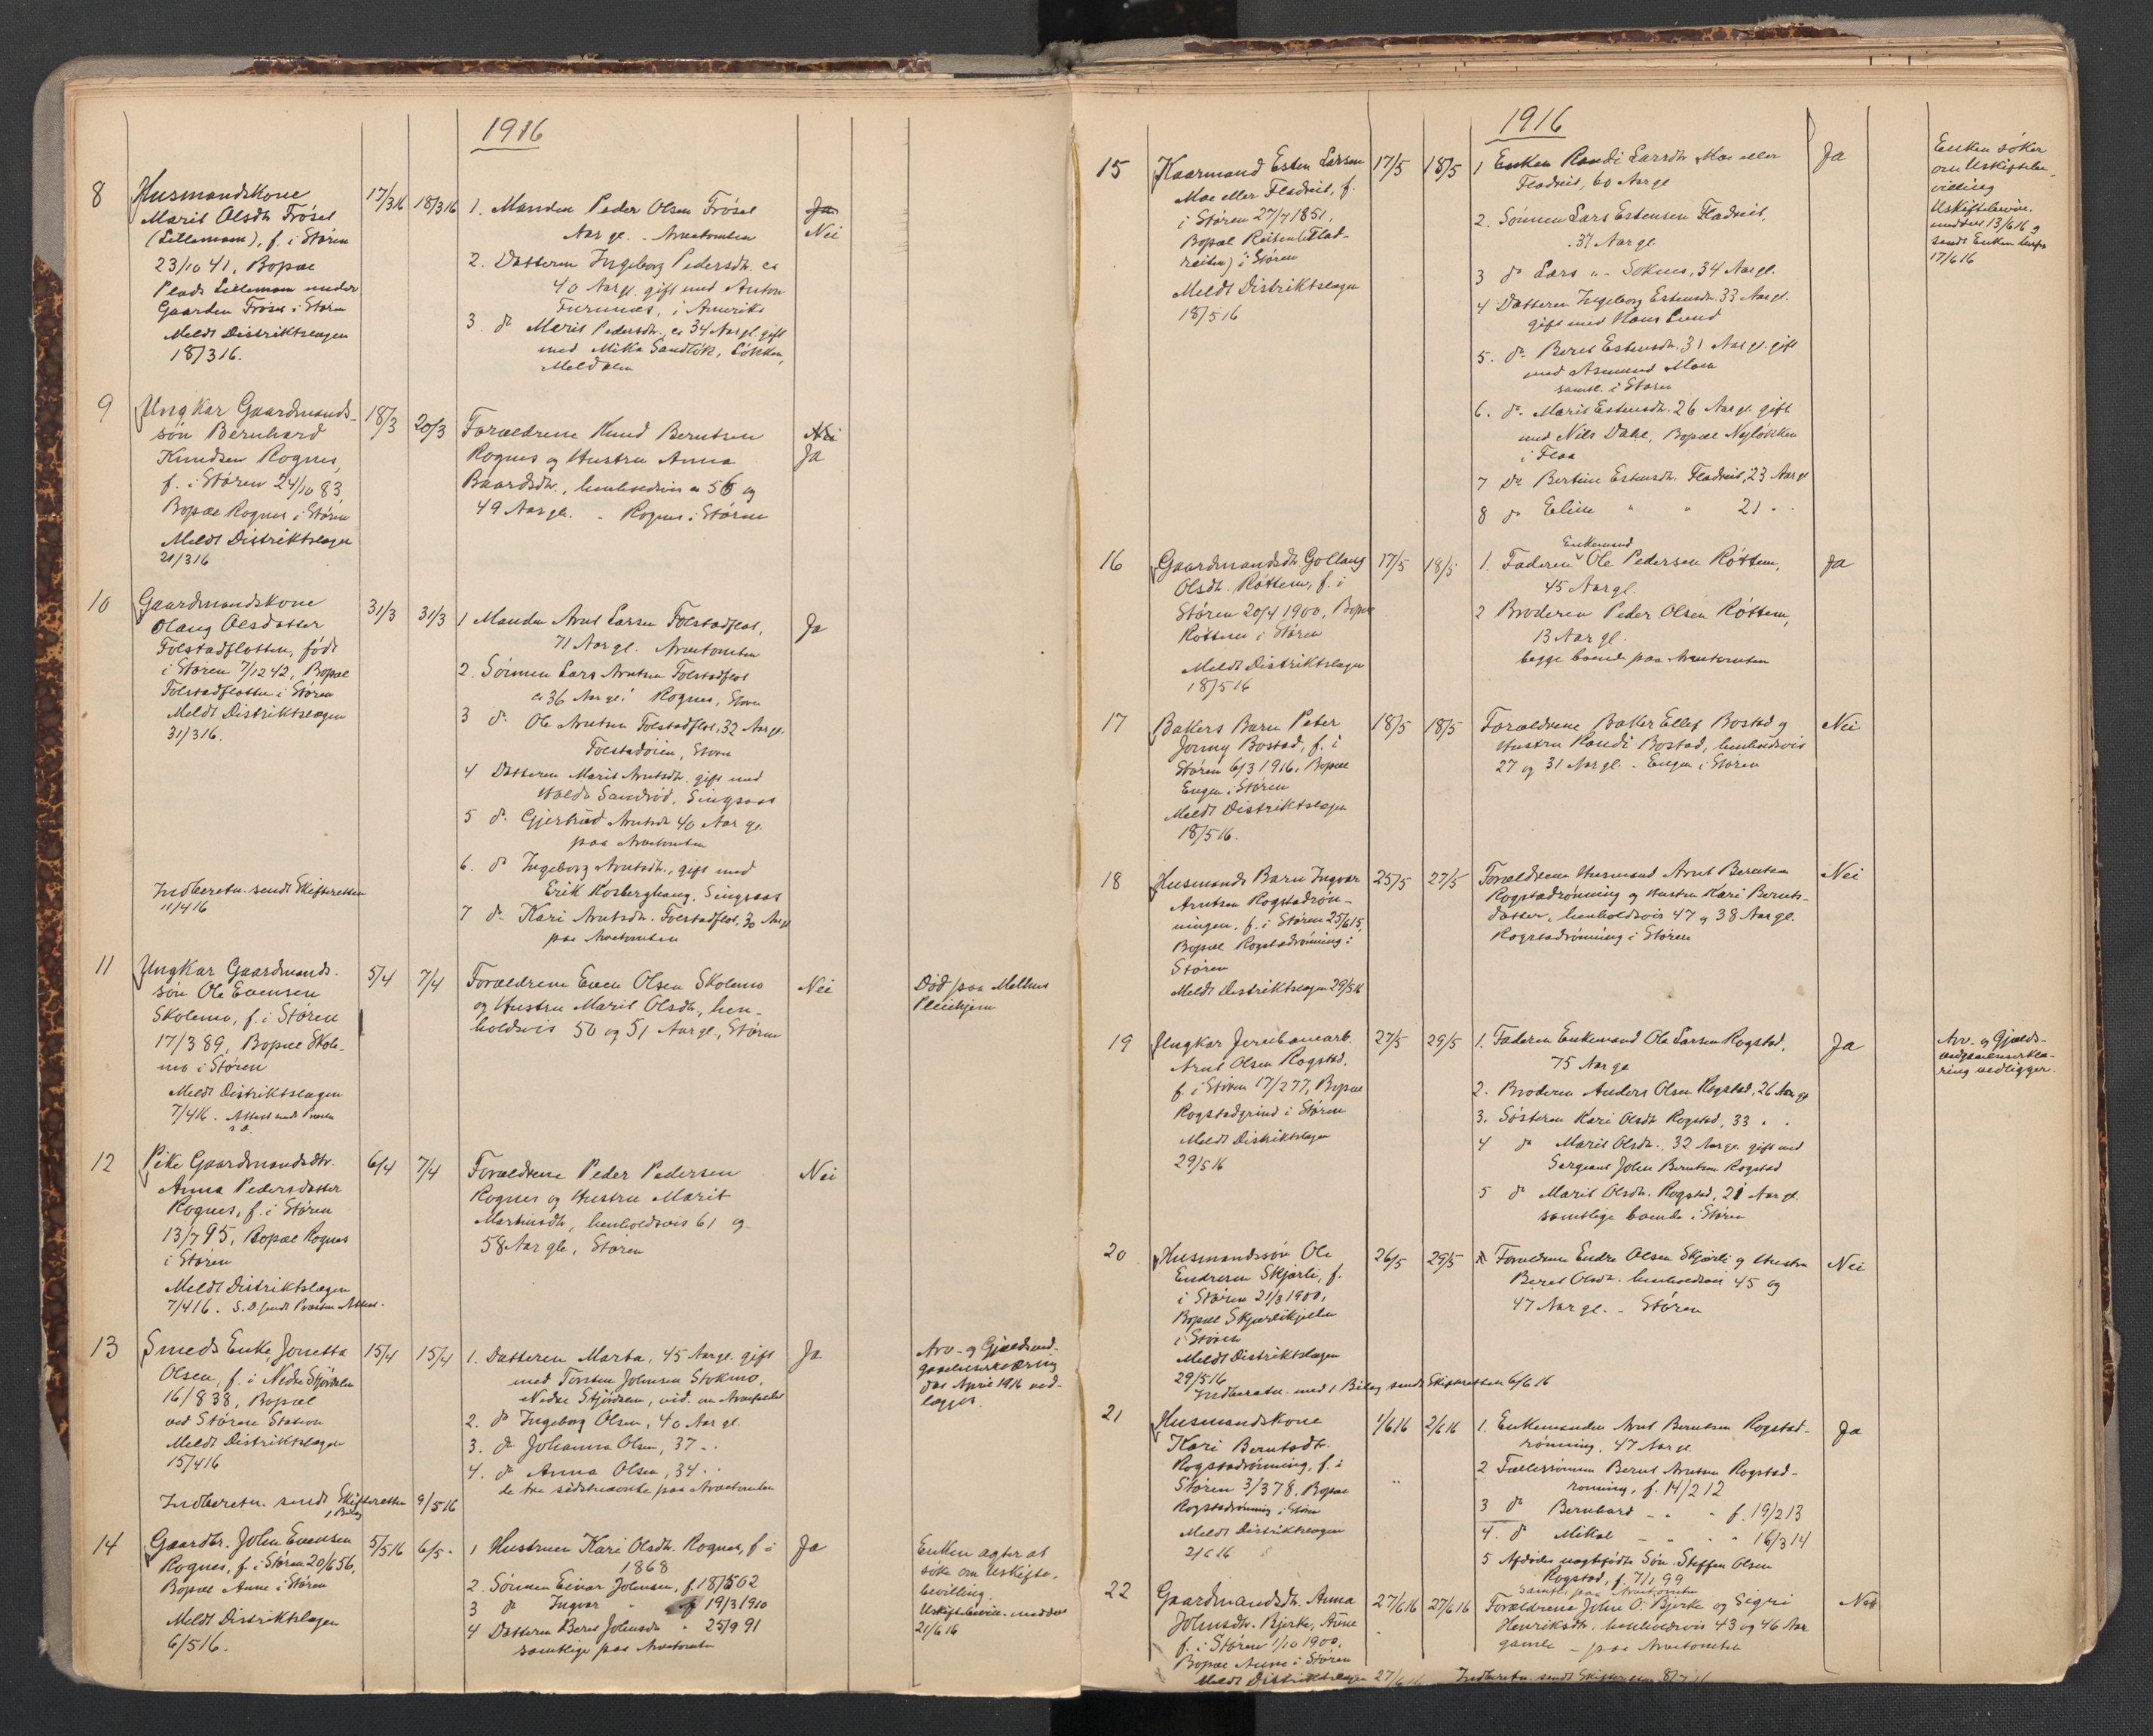 1916
8 Husmandskone 17/3 16 18/3 16 1. Manden Peder Olsen Frøset Ja
Marit Olsdtr Frøset Aar gl. - Arvetomten Nei
(Lillemoen), f. i Støren 2. Datteren Ingeborg Pedersdtr. ca
23/10 41, Bopæl 40 Aar gl. gift med Anton
Plads Lillemoen under Furunes, i Amerika
Gaarden Frøset i Støren 3 do Marit Pedersdtr. ca 34 Aar gl gift
Meldt Distriktslægen med Mika Sandløk, Løkken,
18/3 16. Meldalen
9 Ungkar Gaardmands- 18/3 20/3 Forældrene Knud Berntsen Nei
søn Bernhard Rognes og Hustru Anna Ja
Knudsen Rognes, Baardsdtr., henholdsvis ca 56 og
f. i Støren 24/10 83, 49 Aar gl. - Rognes i Støren
Bopæl Rognes i Støren
Meldt Distriktslægen
21/3 16
10 Gaardmandskone 31/3 31/3 1 Manden Arnt Larsen Folstadflot, Ja
Olaug Olsdatter 71 Aar gl. Arvetomten
Folstadflotten, født 2. Sønnen Lars Arntsen Folstadflot
i Støren 7/12 42, Bopæl ca 36 Aar gl. Rognes, Støren
Folstadflotten i Støren 3 do Ole Arntsen Folstadflot, 32 Aar gl.
Meldt Distriktslægen Folstadøien, Støren
31/3 16. 4 Datteren Marit Arntsdtr. gift med
Sandrød, Singsaas
5 do. Gjertrud Arntsdtr 40 Aar gl.
paa Arvetomten
6. do Ingeborg Arntsdtr., gift med
Erik Kosberghaug, Singsaas
Indberetn. sendt Skifteretten 7 do Kari Arntsdtr. Folstadflot, 30 Aar gl
11/4 16 paa Arvetomten
11 Ungkar Gaardmands- 5/4 7/4 Forældrene Even Olsen Skolmo Nei Død paa Melhus
søn Ole Evensen og Hustru Marit Olsdtr, hen- Pleiehjem
Skolmo, f. i Støren holdsvis 50 og 51 Aar gl., Støren
17/3 89, Bopæl Skol-
mo i Støren
Meldt Distriktslægen
7/4 16. Attest sendt Presten
s.d.
12 Pike Gaardmandsdtr. 6/4 7/4 Forældrene Peder Pedersen Nei
Anna Pedersdatter Rognes og Hustru Marit
Rognes, f. i Støren Martinsdtr, henholdsvis 61 og
13/7 95, Bopæl Rognes 58 Aar gle, Støren
i Støren
Meldt Distriktslægen
7/4 16. S.D. sendt Presten Attest.
13 Smeds Enke Jonetta 15/4 15/4 1. Datteren Marta, 45 Aar gl. gift Ja Arv- og Gjældsved-
Olsen, f. i Nedre Stjørdalen med Torsten Johnsen Stokmo, gaaelseserklæring
16/8 38, Bopæl Nedre Stjørdalen, dat April 1916 ved-
ved Støren Station 2. do Ingeborg Olsen, 40 Aar gl. lægges.
Meldt Distriktslægen 3. do Johanna Olsen, 37 - .
15/4 16 4. do Anna Olsen, 34 . .
Indberetn. sendt Skifteretten 9/5 16 de tre sidstnævnte paa Arvetomten
1 Bilag
14 Gaardbr. John Evensen 5/5 16 6/5. 1 Hustruen Kari Olsdtr. Rognes, f i Ja Enken agter at
Rognes, f. i Støren 20/6 56, 1868 søke om Uskifte-
Bopæl Aune i Støren 2. Sønnen Einar Johnsen, f. 18/5 02 bevilling
Meldt Distriktslægen 3 do Ingvar " f 19/3 1910 Uskiftebevill. meddelt
6/5 16. 4 Datteren Beret Johnsdtr " 25/9 91 21/6 16
samtlige paa Arvetomten
1916
15 Kaarmand Esten Larsen 17/5 18/5 1 Enken Randi Larsdtr Moe eller Ja Enken søker
Moe eller Fladreit, f. Fladreit, 60 Aar gl om Uskiftebe-
i Støren 27/7 1851, 2. Sønnen Lars Estensen Fladreit, villing
Bopæl Reiten (Flad- 37 Aar gl. Uskiftebevill.
reiten) i Støren 3 do Lars " - Soknes, 34 Aar gl. meddelt 13/6 16 og
Meldt Distriktslægen 4 Datteren Ingeborg Estensdtr. 33 Aar gl. sendt Enken
18/5 16 gift med Hans Lund 17/6 16
5. do. Beret Estensdtr. 31 Aar gl. gift
med Asmund Moen
saml. i Støren
6. do. Marit Estensdtr. 26 Aar gl. gift
med Nils Dahl, Bopæl Nyløkken
i Flaa
7 Do Bertine Estensdtr Fladreit, 23 Aar gl
8 do Eline " " 21 . .
16 Gaardmandsdtr Gollaug 17/5 18/5 1. Faderen Enkemand Ole Pedersen Røttem, Ja
Olsdtr. Røttem, f. i 45 Aar gl.
Støren 20/4 1900, Bopæl 2 Broderen Peder Olsen Røttem,
Røttem i Støren 13 Aar gl.
Meldt Distriktslægen begge boende paa Arvetomten
18/5 16
17 Bakers Barn Peter 18/5 18/5 Forældrene Baker Ellef Bostad og Nei
Jonny Bostad, f. i Hustru Randi Bostad, henholdsvis
Støren 6/3 1916, Bopæl 27 og 31 Aar gl. - Engen i Støren
Engen i Støren
Meldt Distriktslægen
18/5 16.
18 Husmands Barn Ingvar 25/5 27/5 Forældrene Husmand Arnt Berntsen Nei
Arntsen Rogstadrøn- Rogstadrønning og Hustru Kari Bernts-
ningen, f. i Støren 25/6 15, datter, henholdsvis 47 og 38 Aar gl.
Bopæl Rogstadrønning i Rogstadrønning i Støren
Støren
Meldt Distriktslægen 29/5 16
19 Ungkar Jernbanearb. 27/5 29/5 1. Faderen Enkemand Ole Larsen Rogstad, Ja Arv- og Gjælds-
Arnt Olsen Rogstad, 75 Aar gl vedgaaelseserklæ-
f. i Støren 17/2 77, Bopæl 2. Broderen Anders Olsen Rogstad, 26 Aar gl ring vedligger.
Rogstadgrind i Støren 3. Søsteren Kari Olsdtr Rogstad, 33 . .
Meldt Distriktslægen 4 do Marit Olsdtr. 32 Aar gl. gift med
29/5 16 Sergeant John Berntsen Rogstad
5 do Marit Olsdtr. Rogstad, 21 Aar gl.
samtlige boende i Støren
20 Husmandssøn Ole 26/5 29/5 Forældrene Endre Olsen Skjærli og Hustru Nei
Endresen Skjærli, f. Beret Olsdtr. henholdsvis 45 og
i Støren 21/3 1900, 47 Aar gl. - Støren
Bopæl Skjærlikjelen
i Støren
Meldt Distriktslægen
29/5 16
Indberetn. med 1 Bilag sendt Skifteretten 6/6 16
21 Husmandskone 1/6 16 2/6 16 1. Enkemanden Arnt Berntsen Rogstad- Ja
Kari Berntsdtr. rønning, 47 Aar gl.
Rogstadrønning, f. i 2 Fællessønnen Bernt Arntsen Rogstad-
Støren 3/3 78, Bopæl rønning, f. 14/2 12
Rogstadrønning i Støren 3 do Bernhard - " " f. 19/2 13
Meldt Distriktslægen 4. do Mikal - " " " 16/3 14
2/6 16 5 Afdødes uegtefødte Søn Steffen Olsen
Rogstad, f. 7/1 99
samtl. paa Arvetomten
22 Gaardmandsdtr. Anna 27/6 16 27/6 16 Forældrene John O. Bjerke og Sigri Nei
Johnsdtr. Bjerke, Aune Henriksdtr. henholdsvis 43 og 46 Aar
f. i Støren 1/10 1900, gamle - paa Arvetomten
Bopæl Aune i Støren
Meldt Distriktslægen 27/6 16 Indberetn. sendt Skifteretten 8/7 16